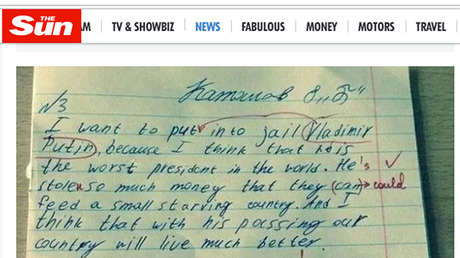 THE Sun
AM TV & SHOWBIZ NEWS FABULOUS MONEY MOTORS TRAVEL
Катанов 8 "Б"
N3
I want to put into jail Vladimir
Putin, because I think that he is
the worst president in the world. He's
stolen so much money that they can could
feed a small starving country. And I
think that with his passing our
country will live much better.